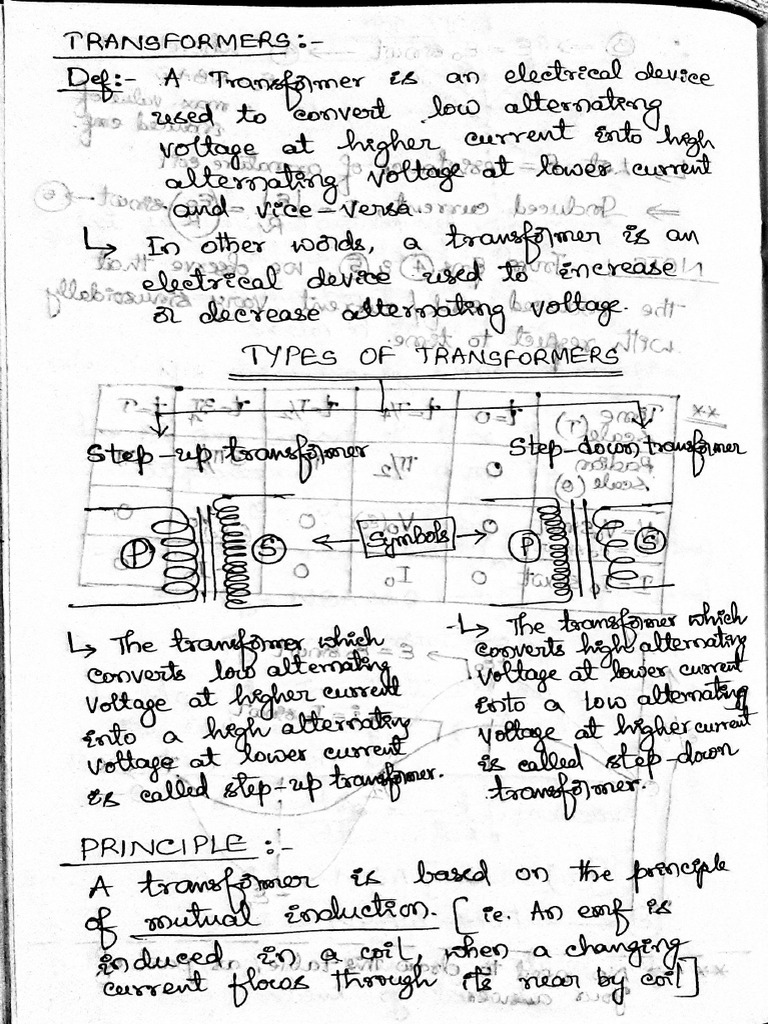 TRANSFORMERS:-
Def:- A Transformer is an electrical device
used to convert low alternating
voltage at higher current into high
alternating voltage at lower current
and vice-versa
↳ In other words, a transformer is an
electrical device used to increase
or decrease alternating voltage.
TYPES OF TRANSFORMERS
Step-up transformer
Step-down transformer
P S ← Symbols → P S
↳ The transformer which
converts low alternating
voltage at higher current
into a high alternating
voltage at lower current
is called step-up transformer.
↳ The transformer which
converts high alternating
voltage at lower current
into a low alternating
voltage at higher current
is called step-down
transformer.
PRINCIPLE:-
A transformer is based on the principle
of mutual induction. [ie. An emf is
induced in a coil, when a changing
current flows through its near by coil]